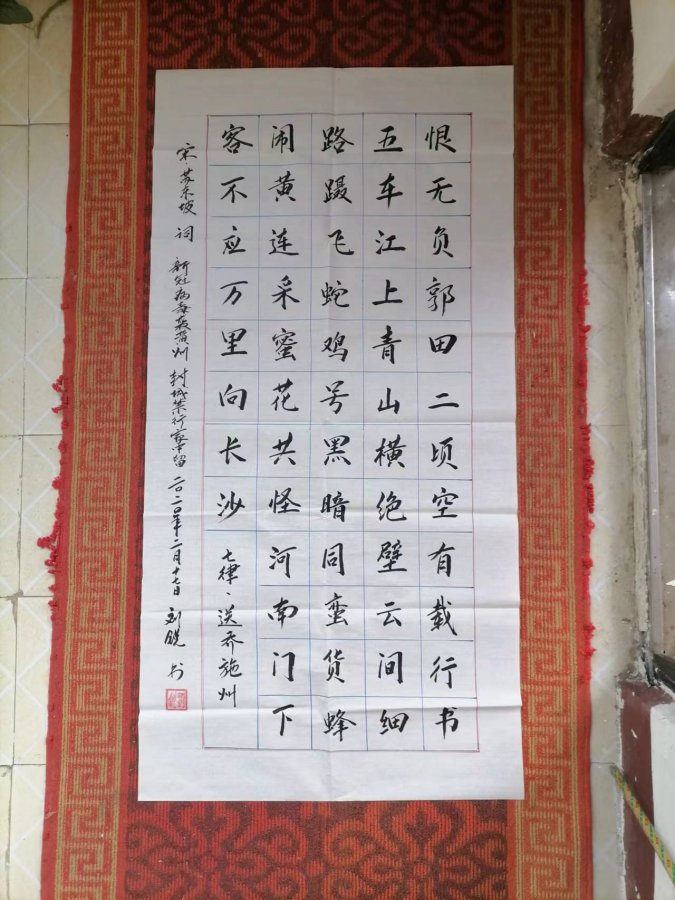 恨无负郭田二顷空有载行书
五车江上青山横绝壁云间细
路蹑飞蛇鸡号黑暗同蛮货蜂
闹黄连采蜜花共怪河南门下
客不应万里向长沙 七律、送乔施州
宋·苏东坡 词 新冠病毒州 封城禁行家中留 二〇二〇年二月十七日 刘 书